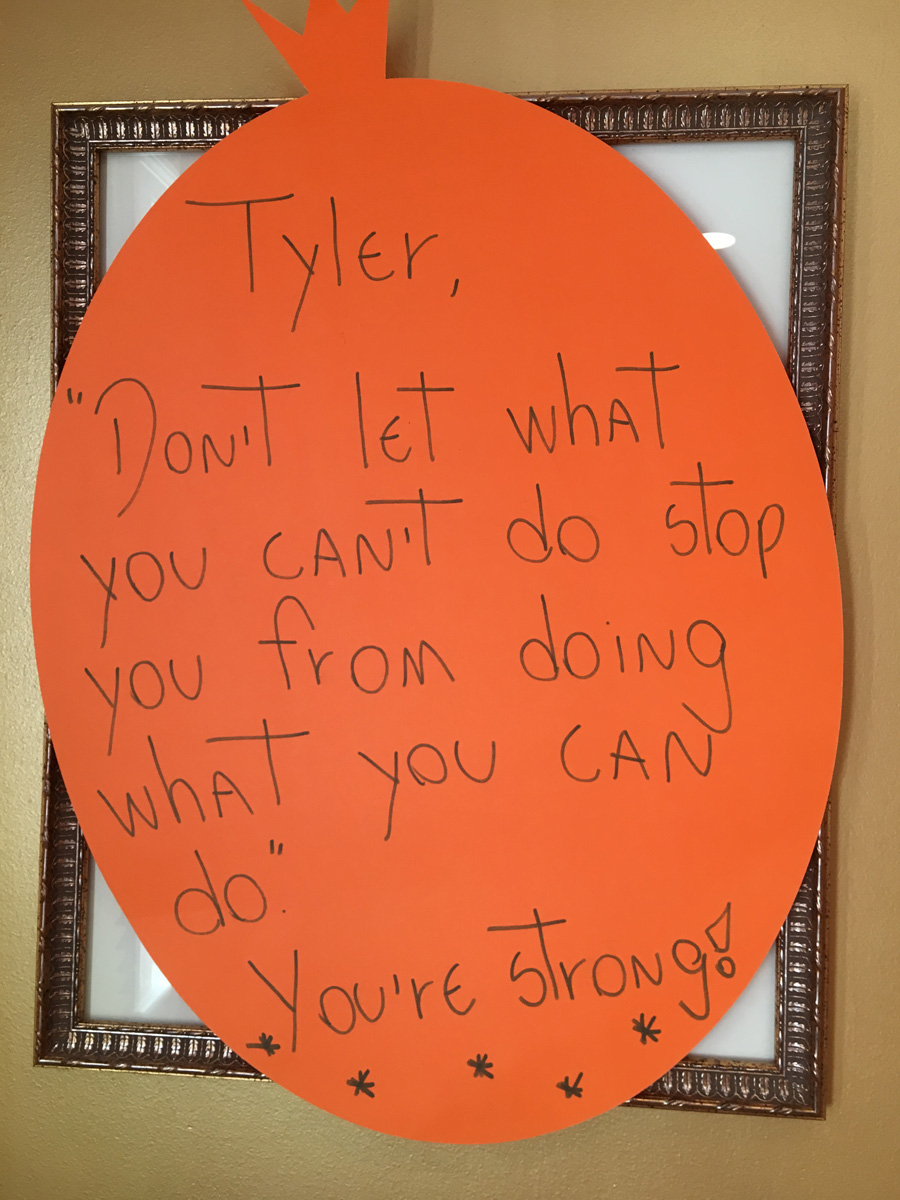 Tyler,
"Don't let what
you can't do stop
you from doing
what you can
do."
You're strong!
* * * * *